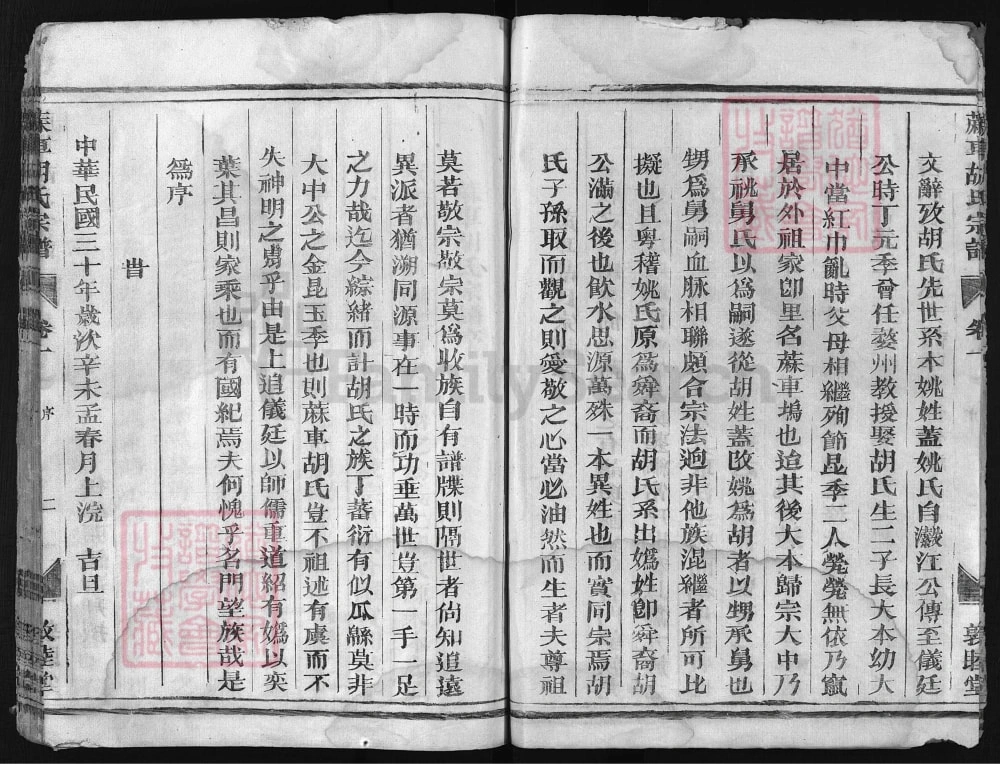 蔴車胡氏宗譜 卷一 敦睦堂
文辭攷胡氏先世系本姚姓蓋姚氏自瀫江公傳至儀廷
公時丁元季曾任婺州教授娶胡氏生二子長大本幼大
中當紅巾亂時父母相繼殉節昆季二人煢煢無依乃寄
居於外祖家卽里名蔴車塢也迨其後大本歸宗大中乃
承祧舅氏以爲嗣遂從胡姓蓋改姚爲胡者以甥承舅也
甥爲舅嗣血脉相聯頗合宗法逈非他族混繼者所可比
擬也且粤稽姚氏原爲舜裔而胡氏系出嬀姓卽舜裔胡
公滿之後也飲水思源萬殊一本異姓也而實同宗焉胡
氏子孫取而觀之則愛敬之心當必油然而生者夫尊祖
莫若敬宗敬宗莫爲收族自有譜牒則隔世者尙知追遠
異派者猶溯同源事在一時而功垂萬世豈第一手一足
之力哉迄今綜緒而計胡氏之族丁蕃衍有似瓜緜莫非
大中公之金昆玉季也則蔴車胡氏豈不祖述有虞而不
失神明之胄乎由是上追儀廷以師儒重道紹有嬀以奕
葉其昌則家乘也而有國紀焉夫何愧乎名門望族哉是
爲序
旹
中華民國三十年歲次辛未孟春月上浣 吉旦
蔴車胡氏宗譜 卷一 序 二 敦睦堂